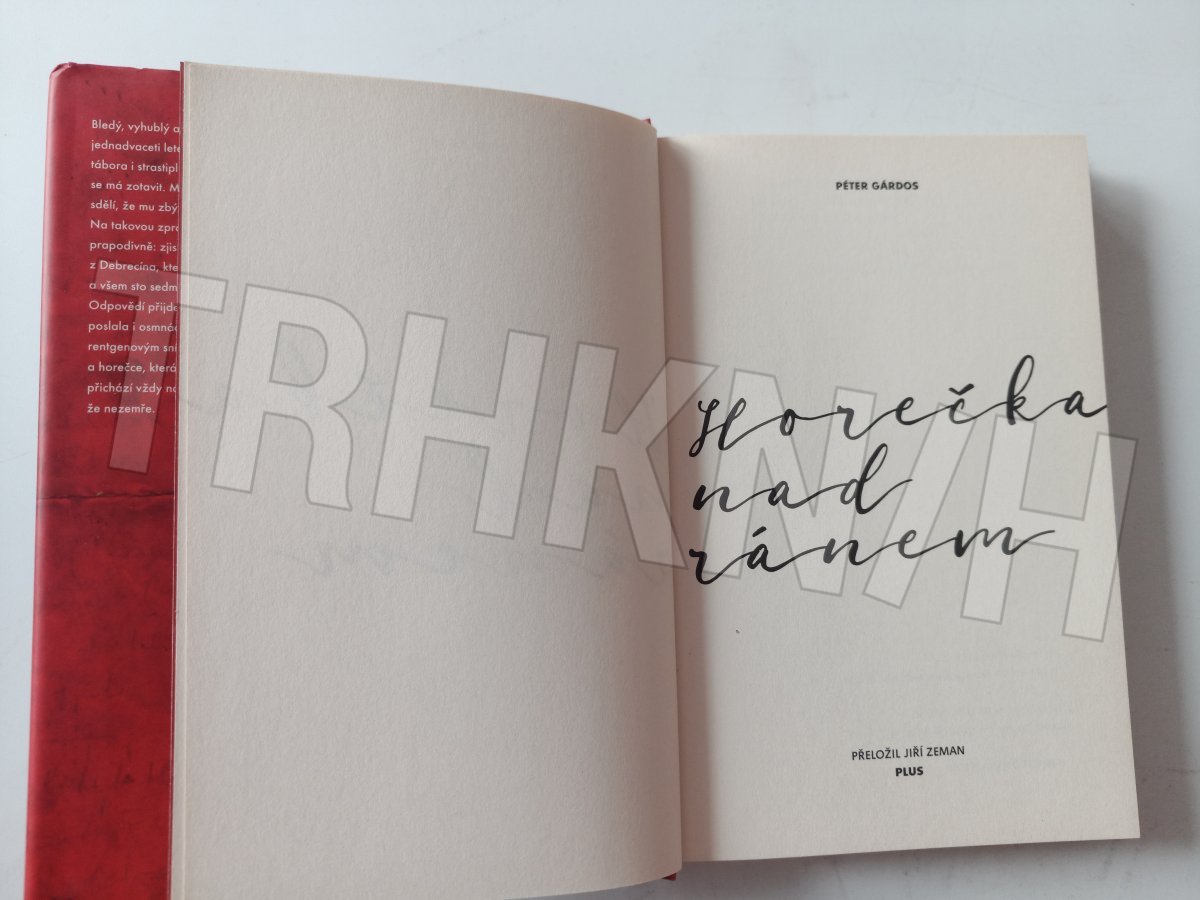 Bledý, vyhublý a
jednadvaceti lete
tábora i strastipl
se má zotavit. M
sdělí, že mu zbý
Na takovou zprá
prapodivně: zjis
z Debrecína, kte
a všem sto sedm
Odpovědí přijde
poslala i osmnác
rentgenovým sní
a horečce, která
přichází vždy na
že nezemře.
PÉTER GÁRDOS
Horečka
nad
ránem
PŘELOŽIL JIŘÍ ZEMAN
PLUS
TRHKNIH